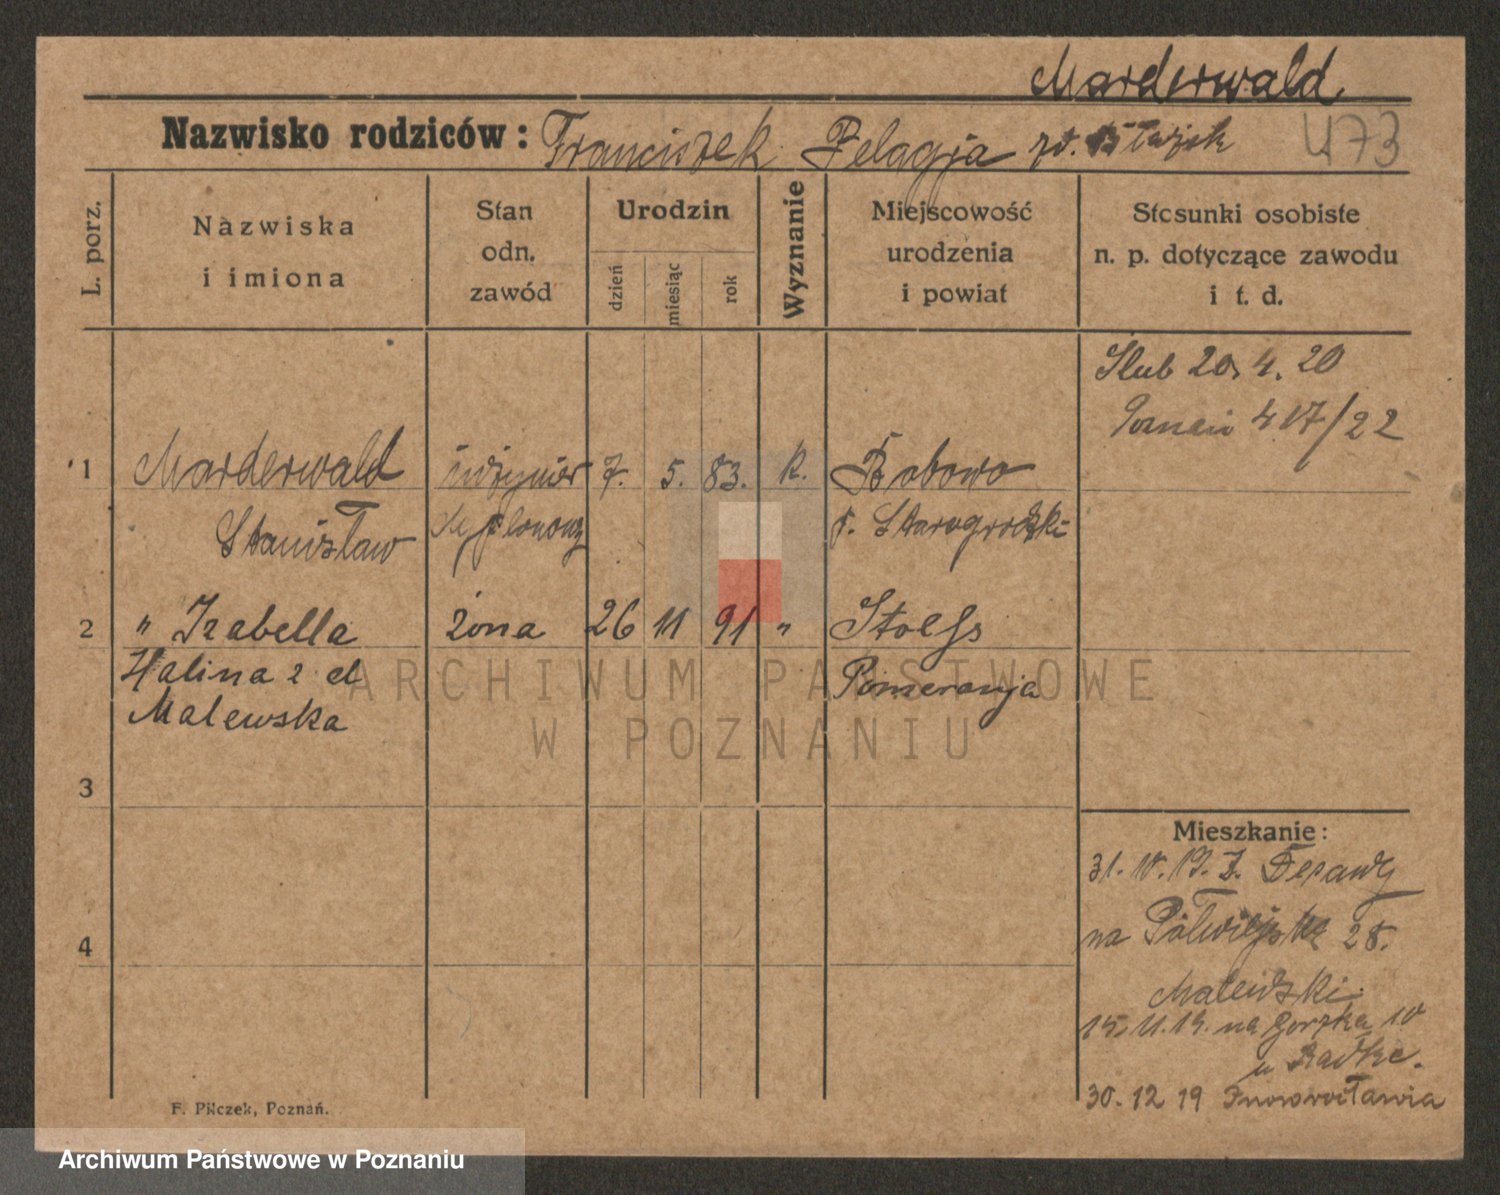 Marderwald
Nazwisko rodziców: Franciszek Pelagja zd.
473
L. porz.
Nazwiska
i imiona
Stan
odn.
zawód
Urodzin
dzień
miesiąc
rok
Wyznanie
Miejscowość
urodzenia
i powiat
Stosunki osobiste
n. p. dotyczące zawodu
i t. d.
Ślub 20. 4. 20
Poznań 417/22
1 Marderwald inżynier 7. 5. 83. k. Bobowo
Stanisław dyplonowy p. Starogrodzki
2 " Izabella żona 26 11 91 " Stolp
Halina z d Pomeranja
Malewska
3
4
Mieszkanie:
31. 10. 19. z
na Półwiejska 28.
Malewski
15. 11. 19. na Gorzka 10
u Radke.
30. 12 19 Inowrocławia
F. Pilczek, Poznań.
ARCHIWUM PAŃSTWOWE
W POZNANIU
Archiwum Państwowe w Poznaniu